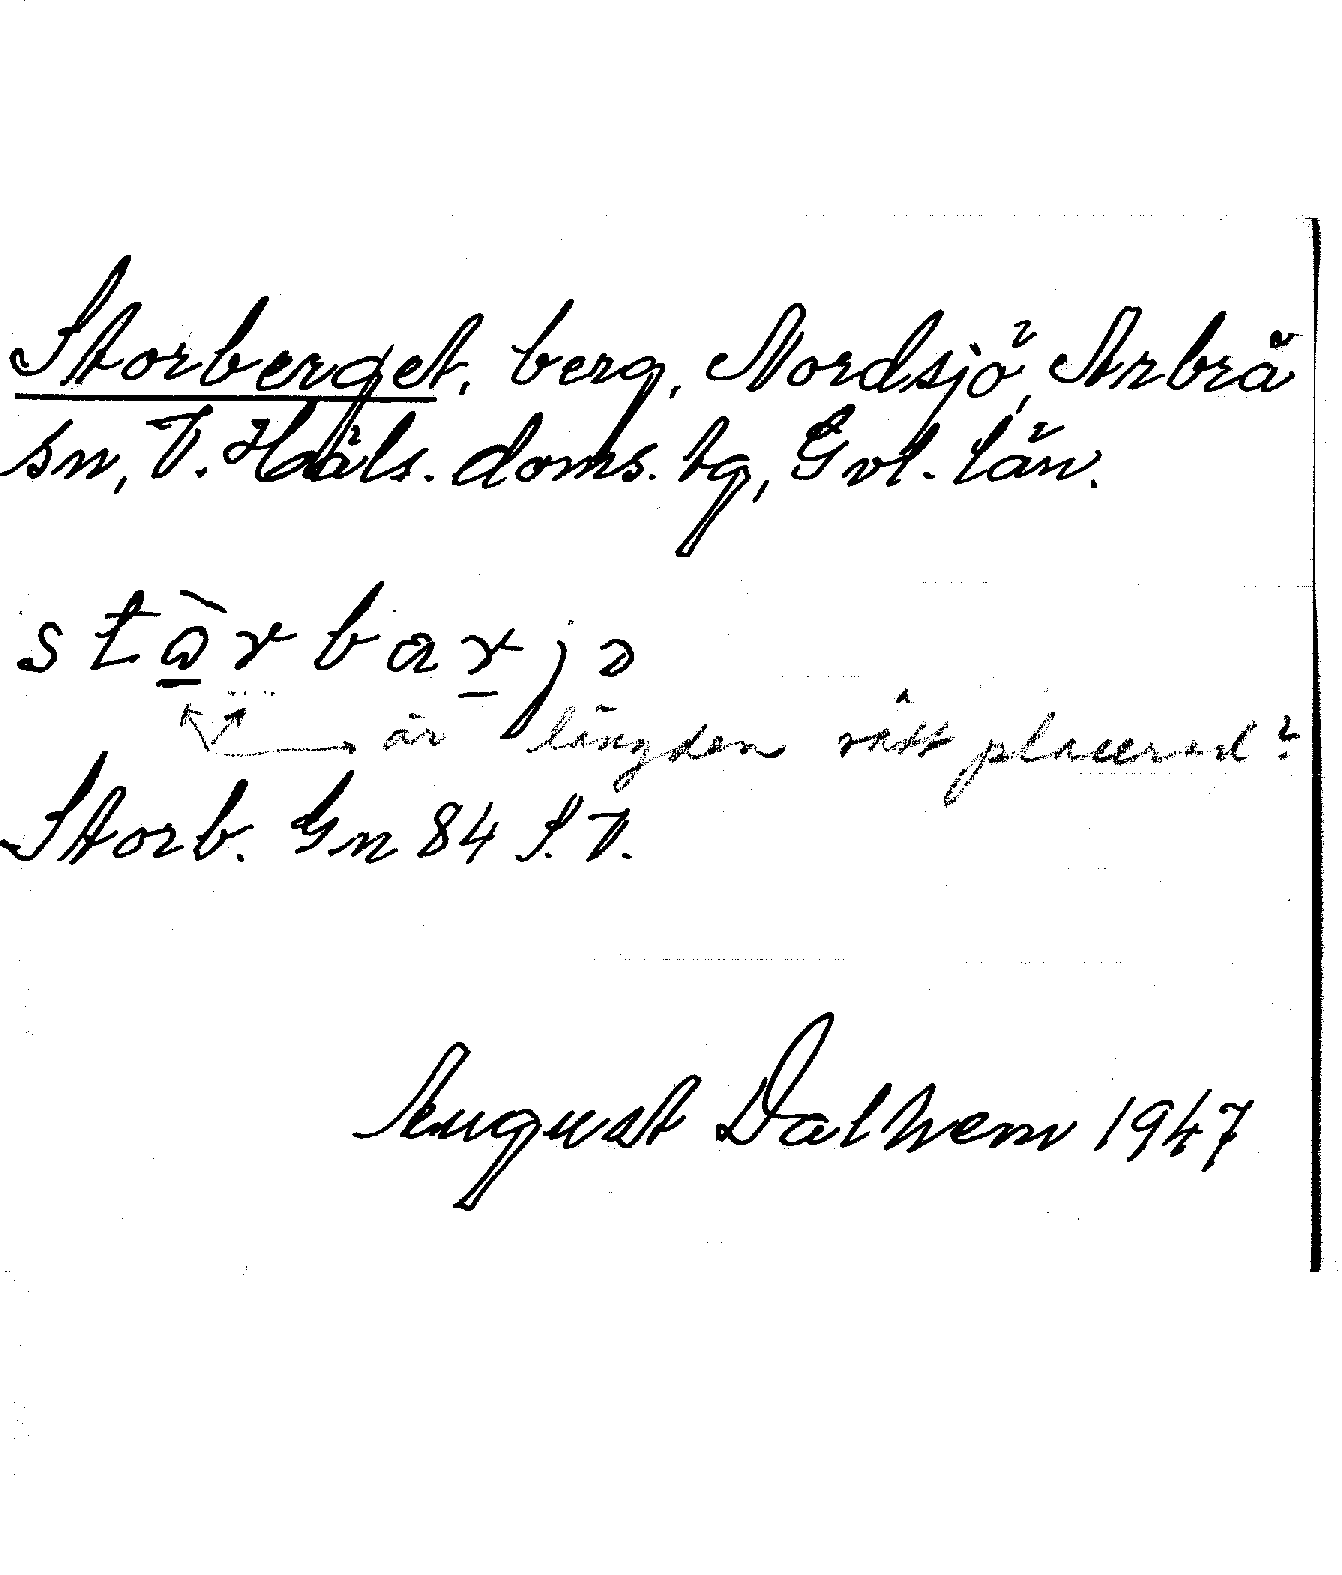 Storberget, berg, Nordsjö, Arbrå
sn, V. Häls. doms. tg, Gvl. län.
stàrbarjə
är längden rätt placerad?
Storb. Gn 84 S.V.
August Dalhem 1947